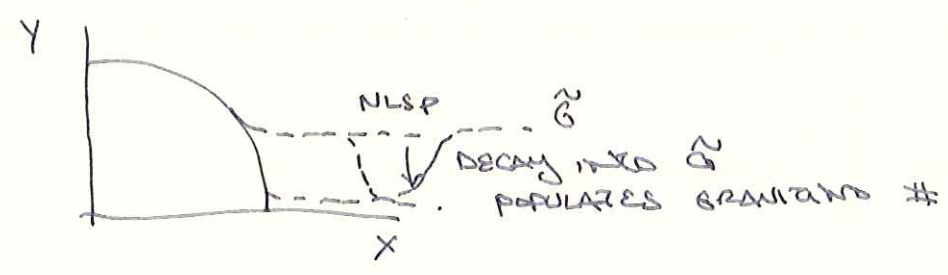 Y
NLSP
G̃
DECAY INTO G̃
POPULATES GRAVITINO #
X